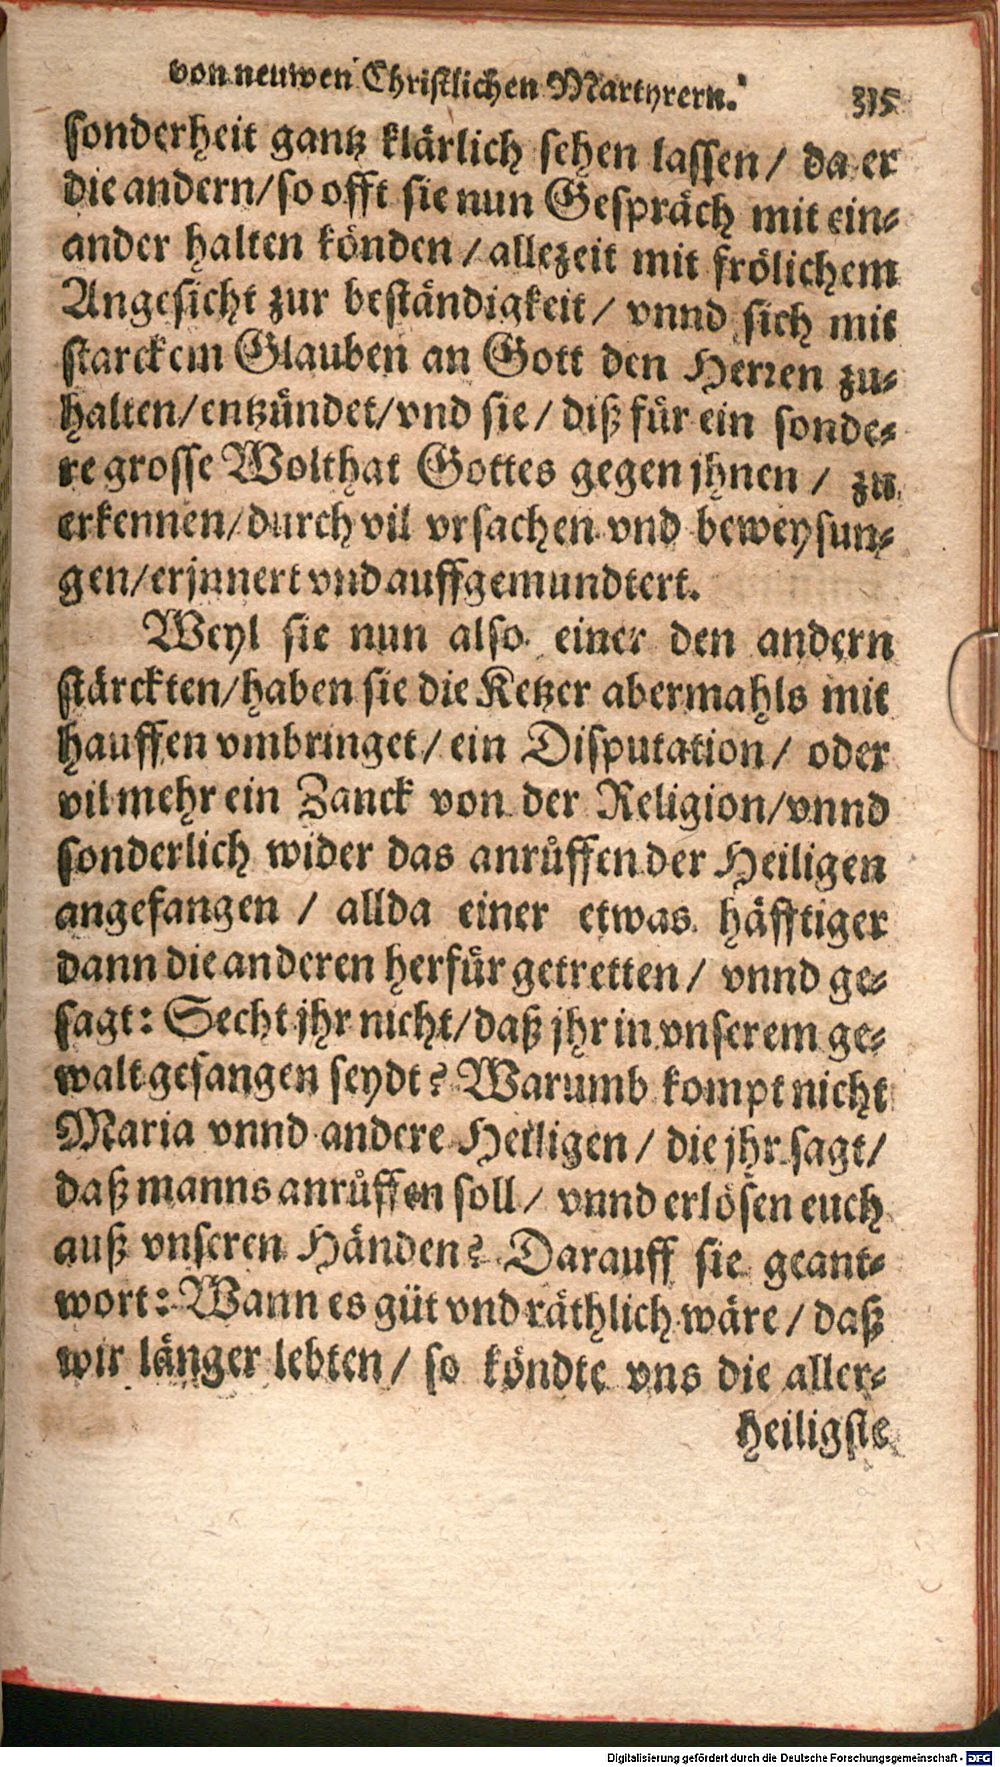 von neuwen Christlichen Martyrern. 315
sonderheit gantz klärlich sehen lassen / da er
die andern/so offt sie nun Gespräch mit ein-
ander halten könden / allezeit mit frölichem
Angesicht zur beständigkeit / vnnd sich mit
starckem Glauben an Gott den Herren zu-
halten/entzündet/vnd sie / diß für ein sonde-
re grosse Wolthat Gottes gegen jhnen / zu
erkennen/durch vil vrsachen vnd beweysun-
gen/erjnnert vnd auffgemundtert.
Weyl sie nun also einer den andern
stärckten/haben sie die Ketzer abermahls mit
hauffen vmbringet/ ein Disputation / oder
vil mehr ein Zanck von der Religion/vnnd
sonderlich wider das anrůffen der Heiligen
angefangen / allda einer etwas häfftiger
dann die anderen herfür getretten / vnnd ge-
sagt: Secht jhr nicht/daß jhr in vnserem ge-
walt gefangen seydt? Warumb kompt nicht
Maria vnnd andere Heiligen / die jhr sagt/
daß manns anrůffen soll / vnnd erlösen euch
auß vnseren Händen? Darauff sie geant-
wort: Wann es güt vnd räthlich wäre / daß
wir länger lebten / so köndte vns die aller-
heiligste
Digitalisierung gefördert durch die Deutsche Forschungsgemeinschaft - DFG